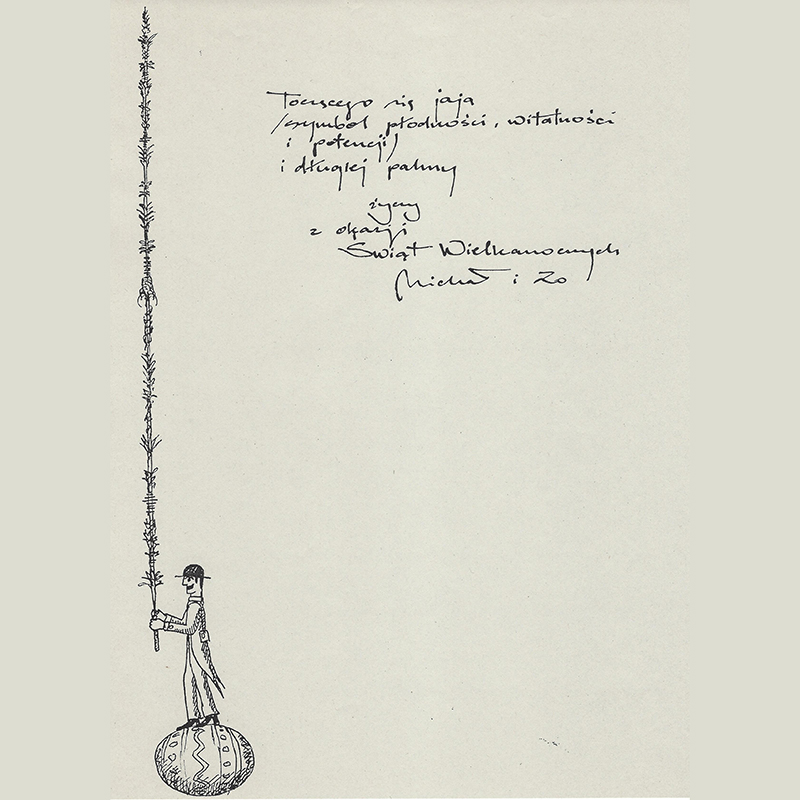 Toczącego się jaja
/symbol płodności, witalności
i potencji/
i długiej palmy
życzy
z okazji
Świąt Wielkanocnych
Michał i Zo